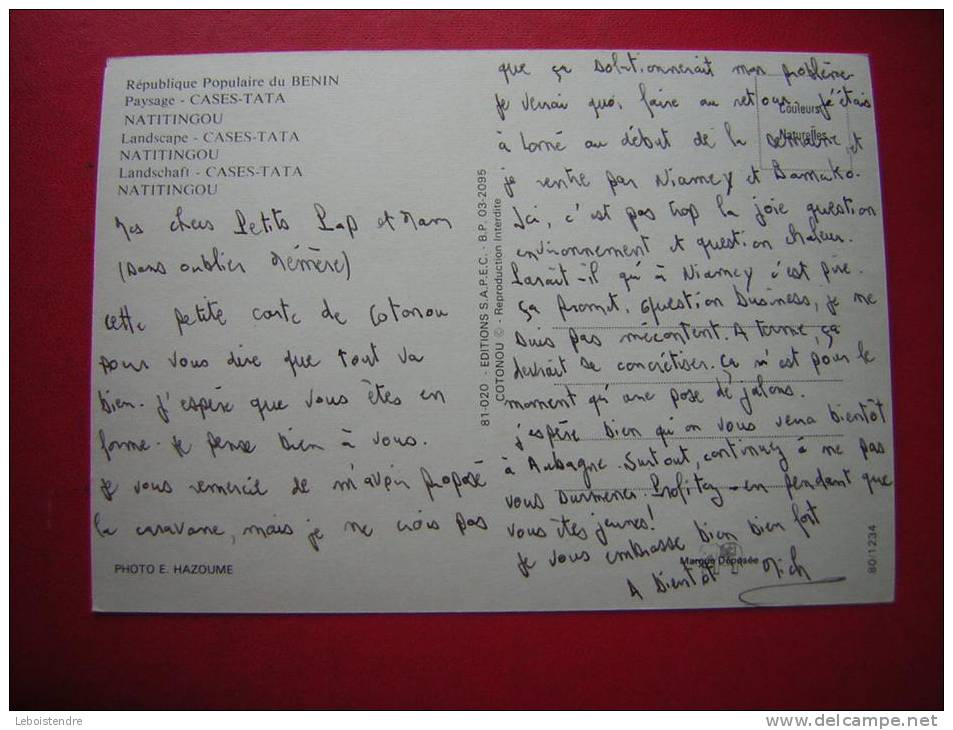 République Populaire du BENIN
Paysage - CASES-TATA
NATITINGOU
Landscape - CASES-TATA
NATITINGOU
Landschaft - CASES-TATA
NATITINGOU
Mes chers Petits Pap et Mam
(sans oublier Mémère)
cette petite carte de Cotonou
pour vous dire que tout va
bien. J'espère que vous êtes en
forme. Je pense bien à vous.
Je vous remercie de m'avoir proposé
la caravane, mais je ne crois pas
PHOTO E. HAZOUME
81-020 - EDITIONS S.A.P.E.C. - B.P. 03-2095
COTONOU © - Reproduction Interdite
que ça solutionnerait mon problème
Je verrai quoi faire au retour. J'étais
à Lomé au début de la semaine et
je rentre par Niamey et Bamako.
Ici, c'est pas trop la joie question
environnement et question chaleur.
Paraît-il qu'à Niamey c'est pire.
ça promet. Question business, je ne
suis pas mécontent. A terme, ça
devrait se concrétiser. Ça n'est pour le
moment qu'une pose de jalons.
J'espère bien qu'on vous verra bientôt
à Aubagne. Surtout, continuez à ne pas
vous surmener. Profitez-en pendant que
vous êtes jeunes!
Je vous embrasse bien bien fort
A bientôt Mich
Couleurs
Naturelles
Marque Déposée
80/1234
Leboistendre
www.delcampe.net